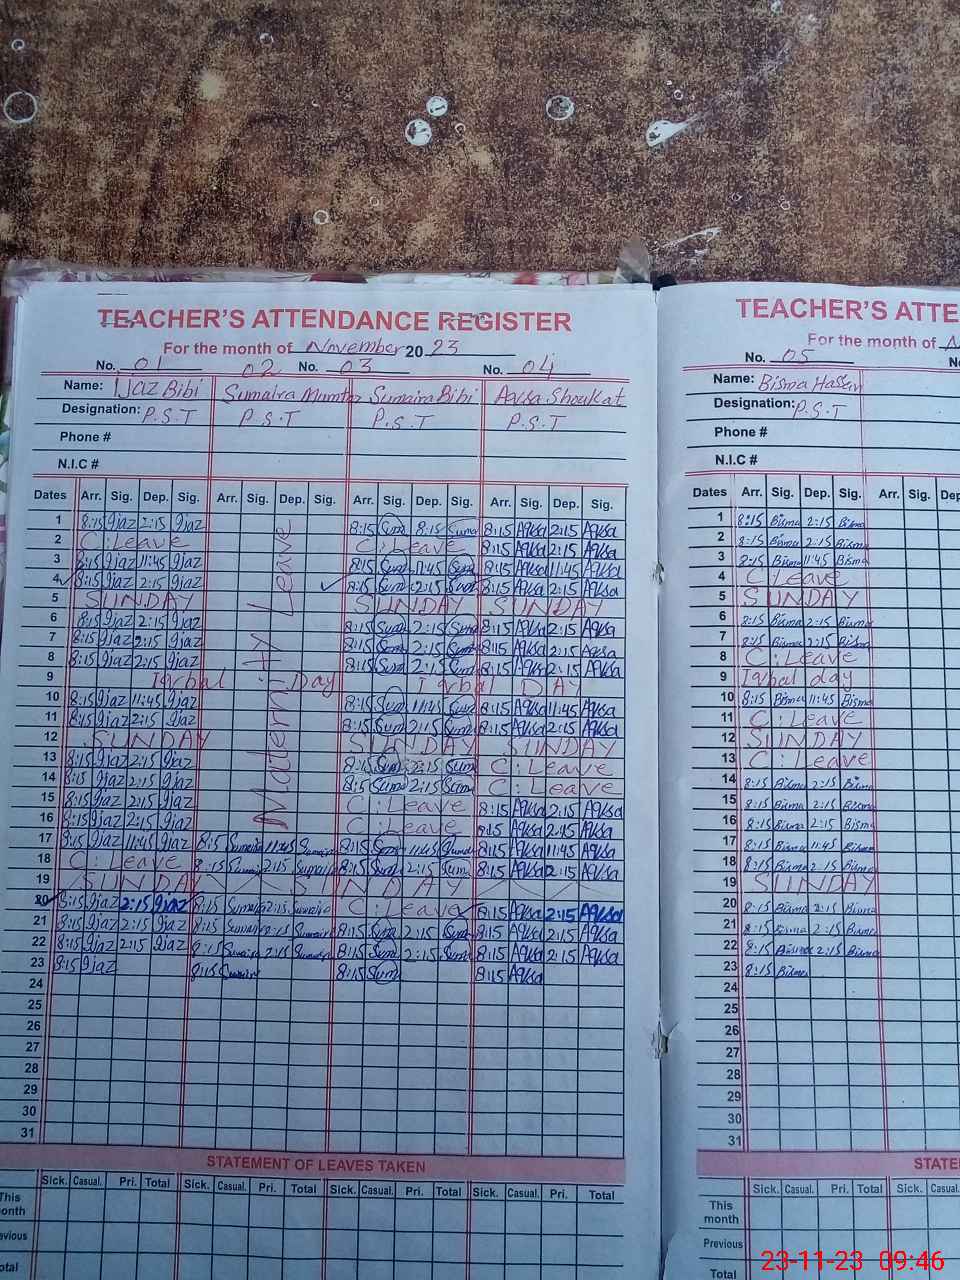 TEACHER'S ATTENDANCE REGISTER
For the month of November 2023
No. 01 02 No. 03 No. 04
Name: Ijaz Bibi Sumaira Mumtaz Sumaira Bibi Aqsa Shoukat
Designation: P.S.T P.S.T P.S.T P.S.T
Phone #
N.I.C #
Dates Arr. Sig. Dep. Sig. Arr. Sig. Dep. Sig. Arr. Sig. Dep. Sig. Arr. Sig. Dep. Sig.
Maternity Leave
1 8:15 Ijaz 2:15 Ijaz 8:15 Suma 8:15 Suma 8:15 Aqsa 2:15 Aqsa
2 C:Leave C:Leave 8:15 Aqsa 2:15 Aqsa
3 8:15 Ijaz 11:45 Ijaz 8:15 Suma 11:45 Suma 8:15 Aqsa 11:45 Aqsa
4 8:15 Ijaz 2:15 Ijaz 8:15 Suma 2:15 Suma 8:15 Aqsa 2:15 Aqsa
5 SUNDAY SUNDAY SUNDAY
6 8:15 Ijaz 2:15 Ijaz 8:15 Suma 2:15 Suma 8:15 Aqsa 2:15 Aqsa
7 8:15 Ijaz 2:15 Ijaz 8:15 Suma 2:15 Suma 8:15 Aqsa 2:15 Aqsa
8 8:15 Ijaz 2:15 Ijaz 8:15 Suma 2:15 Suma 8:15 Aqsa 2:15 Aqsa
9 Iqbal Day Iqbal DAY
10 8:15 Ijaz 11:45 Ijaz 8:15 Sum 11:45 Sum 8:15 Aqsa 11:45 Aqsa
11 8:15 Ijaz 2:15 Ijaz 8:15 Sum 2:15 Sum 8:15 Aqsa 2:15 Aqsa
12 SUNDAY SUNDAY SUNDAY
13 8:15 Ijaz 2:15 Ijaz 8:15 Sum 2:15 Sum C:Leave
14 8:15 Ijaz 2:15 Ijaz 8:15 Suma 2:15 Suma C:Leave
15 8:15 Ijaz 2:15 Ijaz C:Leave 8:15 Aqsa 2:15 Aqsa
16 8:15 Ijaz 2:15 Ijaz C:Leave 8:15 Aqsa 2:15 Aqsa
17 8:15 Ijaz 11:45 Ijaz 8:15 Sumaira 11:45 Sumaira 8:15 Suma 11:45 Suma 8:15 Aqsa 11:45 Aqsa
18 C:Leave 8:15 Sumaira 2:15 Sumaira 8:15 Sum 2:15 Suma 8:15 Aqsa 2:15 Aqsa
19 SUNDAY SUNDAY
20 8:15 Ijaz 2:15 Ijaz 8:15 Sumaira 2:15 Sumaira C:Leave 8:15 Aqsa 2:15 Aqsa
21 8:15 Ijaz 2:15 Ijaz 8:15 Sumaira 2:15 Sumaira 8:15 Suma 2:15 Suma 8:15 Aqsa 2:15 Aqsa
22 8:15 Ijaz 2:15 Ijaz 8:15 Sumaira 2:15 Sumaira 8:15 Sum 2:15 Sum 8:15 Aqsa 2:15 Aqsa
23 8:15 Ijaz 8:15 Sumaira 8:15 Sum 8:15 Aqsa
24
25
26
27
28
29
30
31
STATEMENT OF LEAVES TAKEN
Sick. Casual. Pri. Total Sick. Casual. Pri. Total Sick. Casual. Pri. Total Sick. Casual. Pri. Total
This month
Previous
Total
TEACHER'S ATTE
For the month of
No. 05
Name: Bisma Hassan
Designation: P.S.T
Phone #
N.I.C #
Dates Arr. Sig. Dep. Sig. Arr. Sig. Dep
1 8:15 Bisma 2:15 Bisma
2 8:15 Bisma 2:15 Bisma
3 8:15 Bisma 11:45 Bisma
4 C Leave
5 SUNDAY
6 8:15 Bisma 2:15 Bisma
7 8:15 Bisma 2:15 Bisma
8 C:Leave
9 Iqbal day
10 8:15 Bisma 11:45 Bisma
11 C:Leave
12 SUNDAY
13 C:Leave
14 8:15 Bisma 2:15 Bisma
15 8:15 Bisma 2:15 Bisma
16 8:15 Bisma 2:15 Bisma
17 8:15 Bisma 11:45 Bisma
18 8:15 Bisma 2:15 Bisma
19 SUNDAY
20 8:15 Bisma 2:15 Bisma
21 8:15 Bisma 2:15 Bisma
22 8:15 Bisma 2:15 Bisma
23 8:15 Bisma
24
25
26
27
28
29
30
31
STATE
Sick. Casual. Pri. Total Sick. Casual.
This month
Previous
Total
23-11-23 09:46